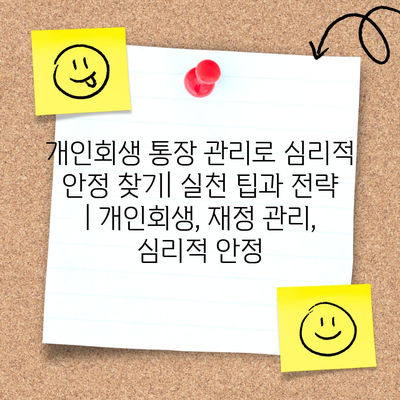 개인회생 통장 관리로 심리적
안정 찾기| 실천 팁과 전략
| 개인회생, 재정 관리,
심리적 안정